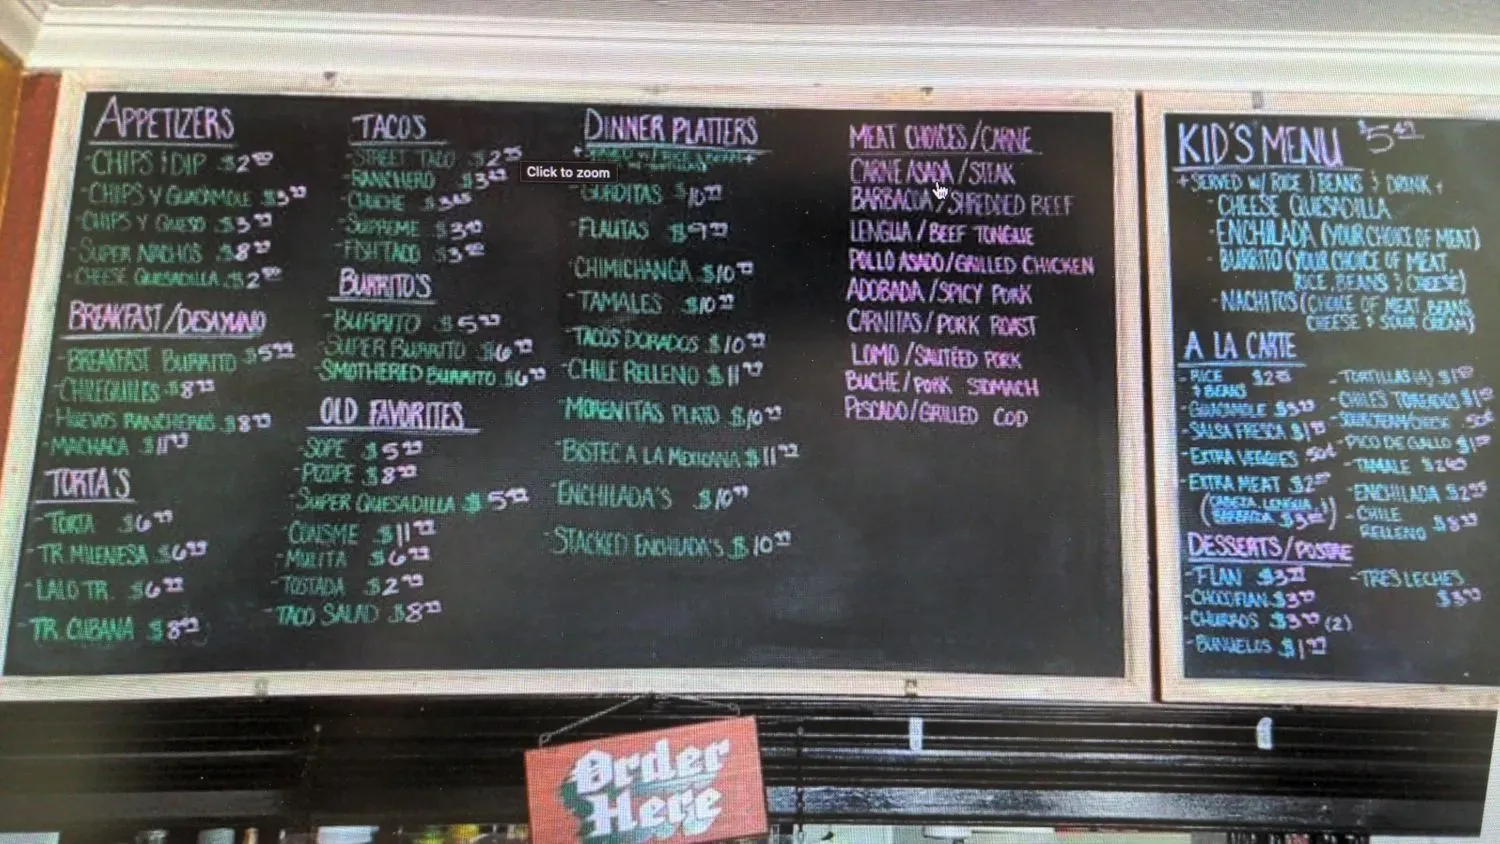 APPETIZERS
-CHIPS & DIP $2
-CHIPS Y GUACAMOLE $3
-CHIPS Y QUESO $3
-SUPER NACHOS $8
-CHEESE QUESADILLA $2
BREAKFAST/DESAYUNO
-BREAKFAST BURRITO $5.99
-CHILEQUILES $8
-HUEVOS RANCHEROS $8
-MACHACA $11
TORTA'S
-TORTA $6.99
-TR. MILENESA $6.99
-LALO TR. $6.99
-TR. CUBANA $8.99
TACOS
-STREET TACO $2
-RANCHERO $3
$3
-SUPREME $3
-FISH TACO $3
BURRITO'S
-BURRITO $5.99
-SUPER BURRITO $6.99
-SMOTHERED BURRITO $6.99
OLD FAVORITES
-SOPE $5.99
$8.99
-SUPER QUESADILLA $5.99
-CONSME $11.99
-MULITA $6.99
-TOSTADA $2.99
-TACO SALAD $8.99
Click to zoom
DINNER PLATTERS
-GORDITAS $10.99
-FLAUTAS $9.99
-CHIMICHANGA $10.99
-TAMALES $10.99
-TACOS DORADOS $10.99
-CHILE RELLENO $11.99
-MORENITAS PLATO $10.99
-BISTEC A LA MEXICANA $11.99
-ENCHILADA'S $10.99
-STACKED ENCHILADA'S $10.99
MEAT CHOICES/CARNE
CARNE ASADA/STEAK
BARBACOA/SHREDDED BEEF
LENGUA/BEEF TONGUE
POLLO ASADO/GRILLED CHICKEN
ADOBADA/SPICY PORK
CARNITAS/PORK ROAST
LOMO/SAUTÉED PORK
BUCHE/PORK STOMACH
PESCADO/GRILLED COD
KID'S MENU $5.49
+SERVED W/ RICE & BEANS & DRINK+
-CHEESE QUESADILLA
-ENCHILADA (YOUR CHOICE OF MEAT)
-BURRITO (YOUR CHOICE OF MEAT
RICE, BEANS & CHEESE)
-NACHITOS (CHOICE OF MEAT, BEANS
CHEESE & SOUR CREAM)
A LA CARTE
-RICE $2
& BEANS
-GUACAMOLE $3
-SALSA FRESCA $1
-EXTRA VEGGIES 50¢
-EXTRA MEAT $2
(CABEZA, LENGUA,
BARBACOA $3)
-TORTILLAS (4) $1
-CHILES TOREADOS $1
50¢
-PICO DE GALLO $1
-TAMALE $2
-ENCHILADA $2
-CHILE
RELLENO $8
DESSERTS/POSTRE
-FLAN $3
-CHOCOFLAN $3
-CHURROS $3 (2)
-BUNUELOS $1
-TRES LECHES
$3
Order
Here